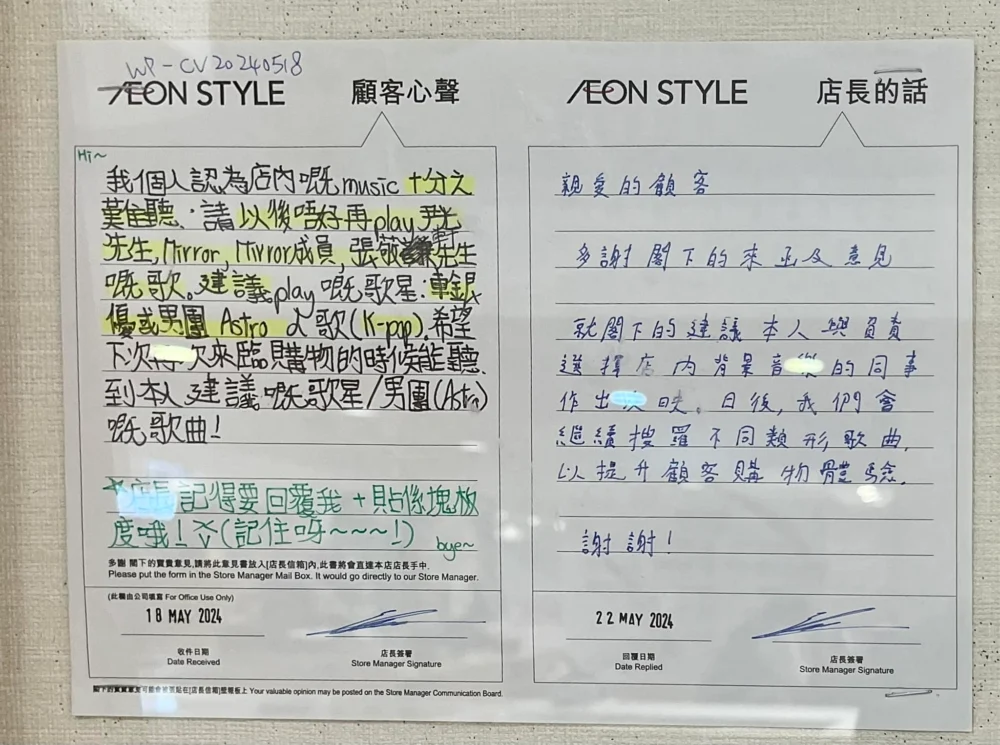 WP-CV20240518
ÆON STYLE
顧客心聲
Hi~
我個人認為店內嘅music 十分之
難聽.請以後唔好再play 尹光
先生, Mirror, Mirror成員, 張敬軒先生
嘅歌。建議play 嘅歌星:車銀
優或男團 Astro 之歌(K-pop).希望
下次再一次來臨購物的時候能聽
到本人建議嘅歌星/男團(Astro)
嘅歌曲!
店長記得要回覆我 + 貼係塊板
度哦! (記住呀~~~!)
bye~
多謝 閣下的寶貴意見,請將此意見書放入[店長信箱]內,此書將會直達本店店長手中.
Please put the form in the Store Manager Mail Box. It would go directly to our Store Manager.
(此欄由公司填寫 For Office Use Only)
18 MAY 2024
收件日期
Date Received
店長簽署
Store Manager Signature
閣下的寶貴意見可能會被張貼在[店長信箱]壁報板上 Your valuable opinion may be posted on the Store Manager Communication Board.
ÆON STYLE
店長的話
親愛的顧客
多謝閣下的來函及意見
就閣下的建議本人與負責
選擇店內背景音樂的同事
作出反映。日後,我們會
繼續搜羅不同類形歌曲,
以提升顧客購物體驗.
謝謝!
22 MAY 2024
回覆日期
Date Replied
店長簽署
Store Manager Signature